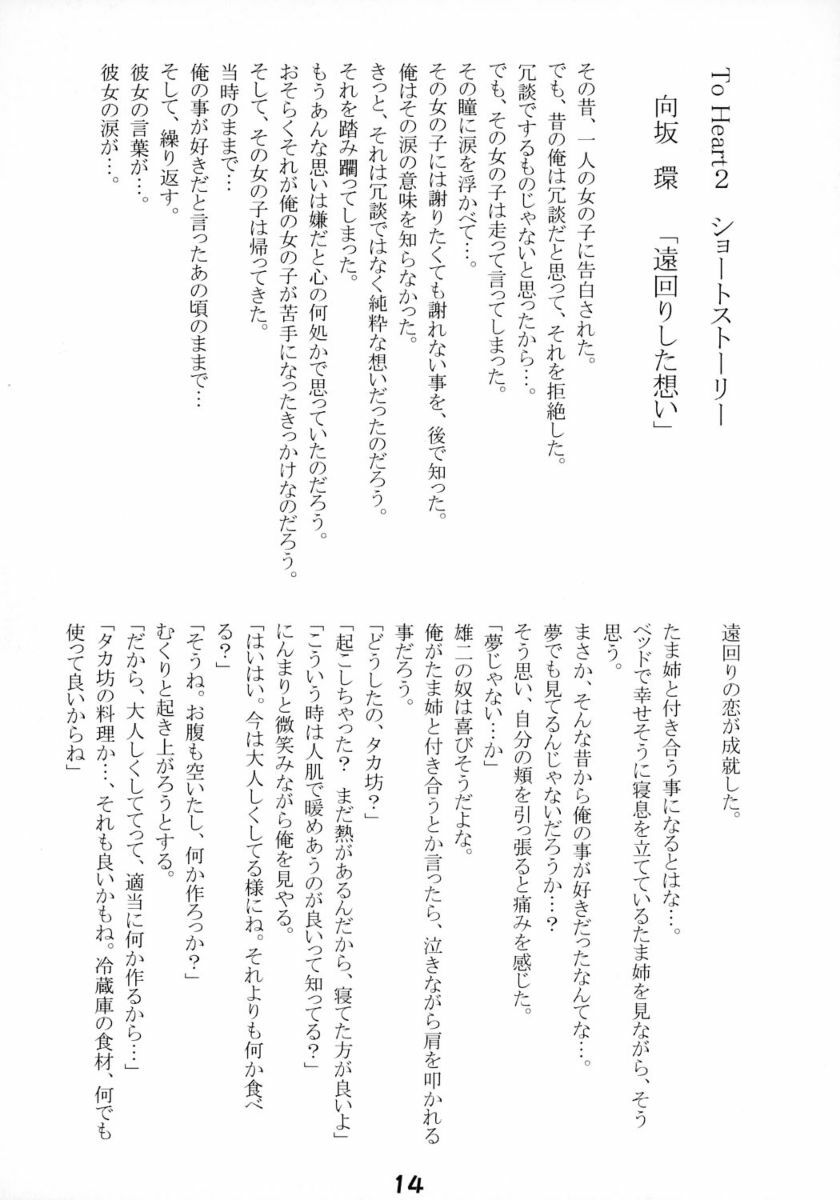 To Heart2　ショートストーリー
向坂　環　「遠回りした想い」
その昔、一人の女の子に告白された。
でも、昔の俺は冗談だと思って、それを拒絶した。
冗談でするものじゃないと思ったから…。
でも、その女の子は走って言ってしまった。
その瞳に涙を浮かべて…。
その女の子には謝りたくても謝れない事を、後で知った。
俺はその涙の意味を知らなかった。
きっと、それは冗談ではなく純粋な想いだったのだろう。
それを踏み躙ってしまった。
もうあんな思いは嫌だと心の何処かで思っていたのだろう。
おそらくそれが俺の女の子が苦手になったきっかけなのだろう。
そして、その女の子は帰ってきた。
当時のままで…
俺の事が好きだと言ったあの頃のままで…
そして、繰り返す。
彼女の言葉が…。
彼女の涙が…。
遠回りの恋が成就した。
たま姉と付き合う事になるとはな…。
ベッドで幸せそうに寝息を立てているたま姉を見ながら、そう
思う。
まさか、そんな昔から俺の事が好きだったなんてな…。
夢でも見てるんじゃないだろうか…？
そう思い、自分の頬を引っ張ると痛みを感じた。
「夢じゃない…か」
雄二の奴は喜びそうだよな。
俺がたま姉と付き合うとか言ったら、泣きながら肩を叩かれる
事だろう。
「どうしたの、タカ坊？」
「起こしちゃった？　まだ熱があるんだから、寝てた方が良いよ」
「こういう時は人肌で暖めあうのが良いって知ってる？」
にんまりと微笑みながら俺を見やる。
「はいはい。今は大人しくしてる様にね。それよりも何か食べ
る？」
「そうね。お腹も空いたし、何か作ろっか？」
むくりと起き上がろうとする。
「だから、大人しくしてって、適当に何か作るから…」
「タカ坊の料理か…、それも良いかもね。冷蔵庫の食材、何でも
使って良いからね」
14